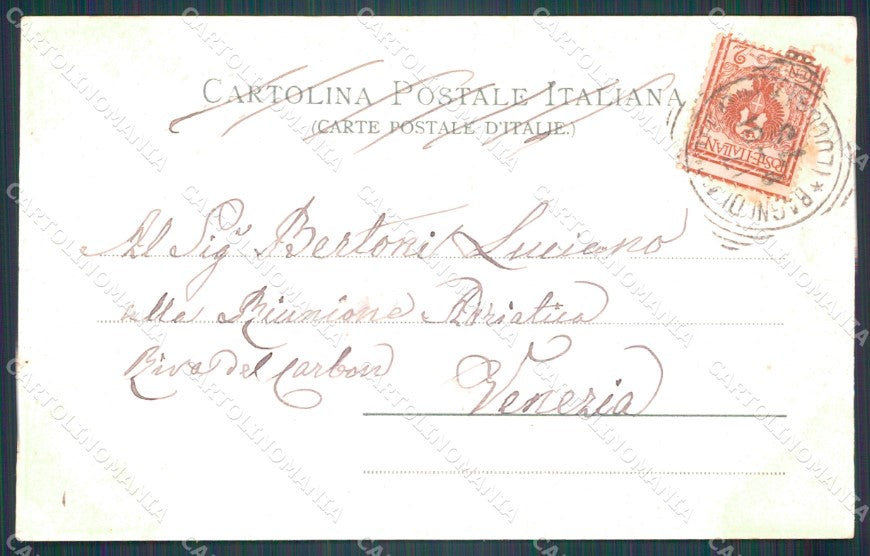 CARTOLINA POSTALE ITALIANA
(CARTE POSTALE D'ITALIE.)
Al Sigr Bertoni Luciano
alla Riunione Adriatica
Riva del Carbon
Venezia
POSTE ITALIANE
BAGNI DI
CARTOLINOMANIA